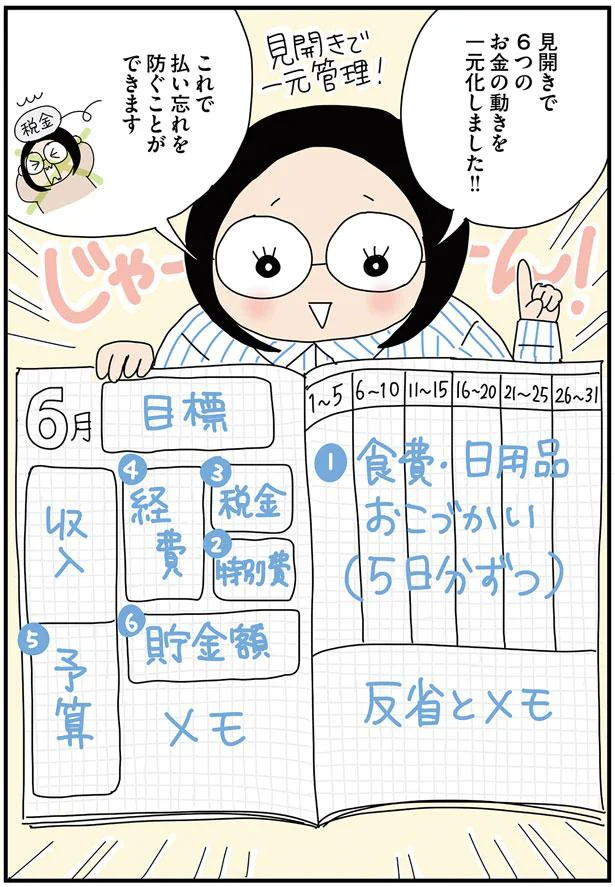 見開きで
6つの
お金の動きを
一元化しました!!
見開きで
一元管理!
これで
払い忘れを
防ぐことが
できます
税金
じゃーーん!
6月
目標
収入
④
経費
③
税金
②
特別費
⑤
予算
⑥
貯金額
メモ
1〜5 6〜10 11〜15 16〜20 21〜25 26〜31
① 食費・日用品
おこづかい
(5日分ずつ)
反省とメモ